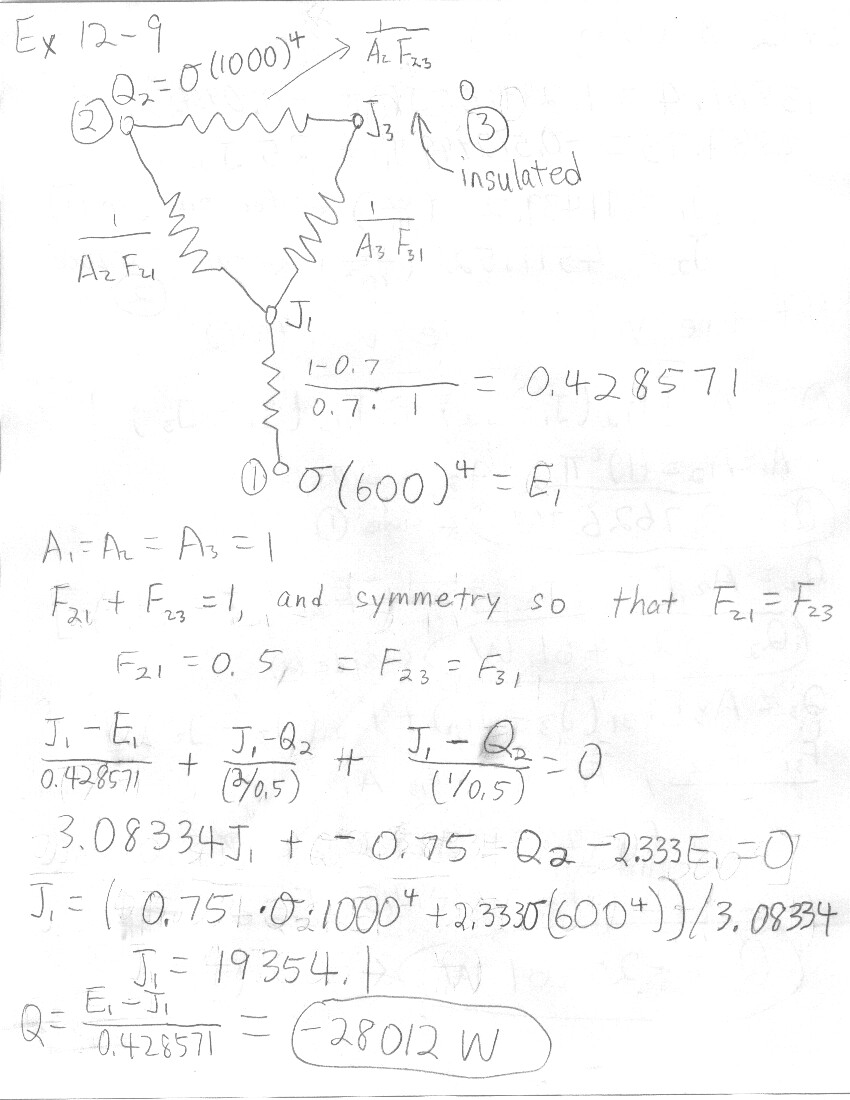 Ex 12-9
Q₂ = σ(1000)⁴
1/(A₂ F₂₃)
② J₃ 0 ③
insulated
1/(A₂ F₂₁) 1/(A₃ F₃₁)
J₁
(1-0.7)/(0.7 · 1) = 0.428571
① σ(600)⁴ = E₁
A₁ = A₂ = A₃ = 1
F₂₁ + F₂₃ = 1, and symmetry so that F₂₁ = F₂₃
F₂₁ = 0.5, = F₂₃ = F₃₁
(J₁ - E₁)/0.428571 + (J₁ - Q₂)/(2/0.5) + (J₁ - Q₂)/(1/0.5) = 0
3.08334J₁ + - 0.75 - Q₂ - 2.333E₁ = 0
J₁ = (0.75 · σ · 1000⁴ + 2.333σ(600⁴))/3.08334
J₁ = 19354.1
Q = (E₁ - J₁)/0.428571 = -28012 W